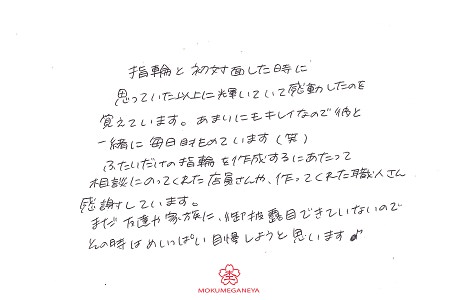 指輪と初対面した時に
思っていた以上に輝いていて感動したのを
覚えています。あまりにもキレイなので彼と
一緒に毎日眺めています(笑)
ふたりだけの指輪を作成するにあたって
相談にのってくれた店員さんや、作ってくれた職人さん
感謝しています。
まだ友達や家族に、御披露目できていないので
その時はめいっぱい自慢しようと思います♪
MOKUMEGANEYA